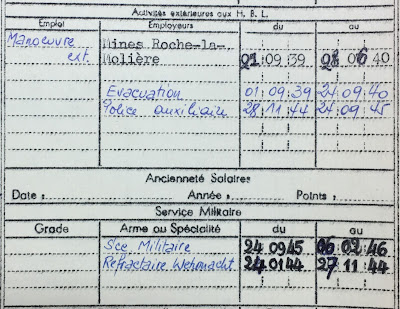 Activités extérieures aux H. B. L.
Emploi Employeurs du au
Manoeuvre Mines Roche-la-
ext. Molière 01 09 39 28 06 40
Evacuation 01 09 39 24 09 40
Police auxiliaire 28 11 44 24 09 45
Ancienneté Salaires
Date : Année : Points :
Service Militaire
Grade Arme ou Spécialité du au
Sce Militaire 24 09 45 06 02 46
Réfractaire Wehrmacht 24 01 44 27 11 44